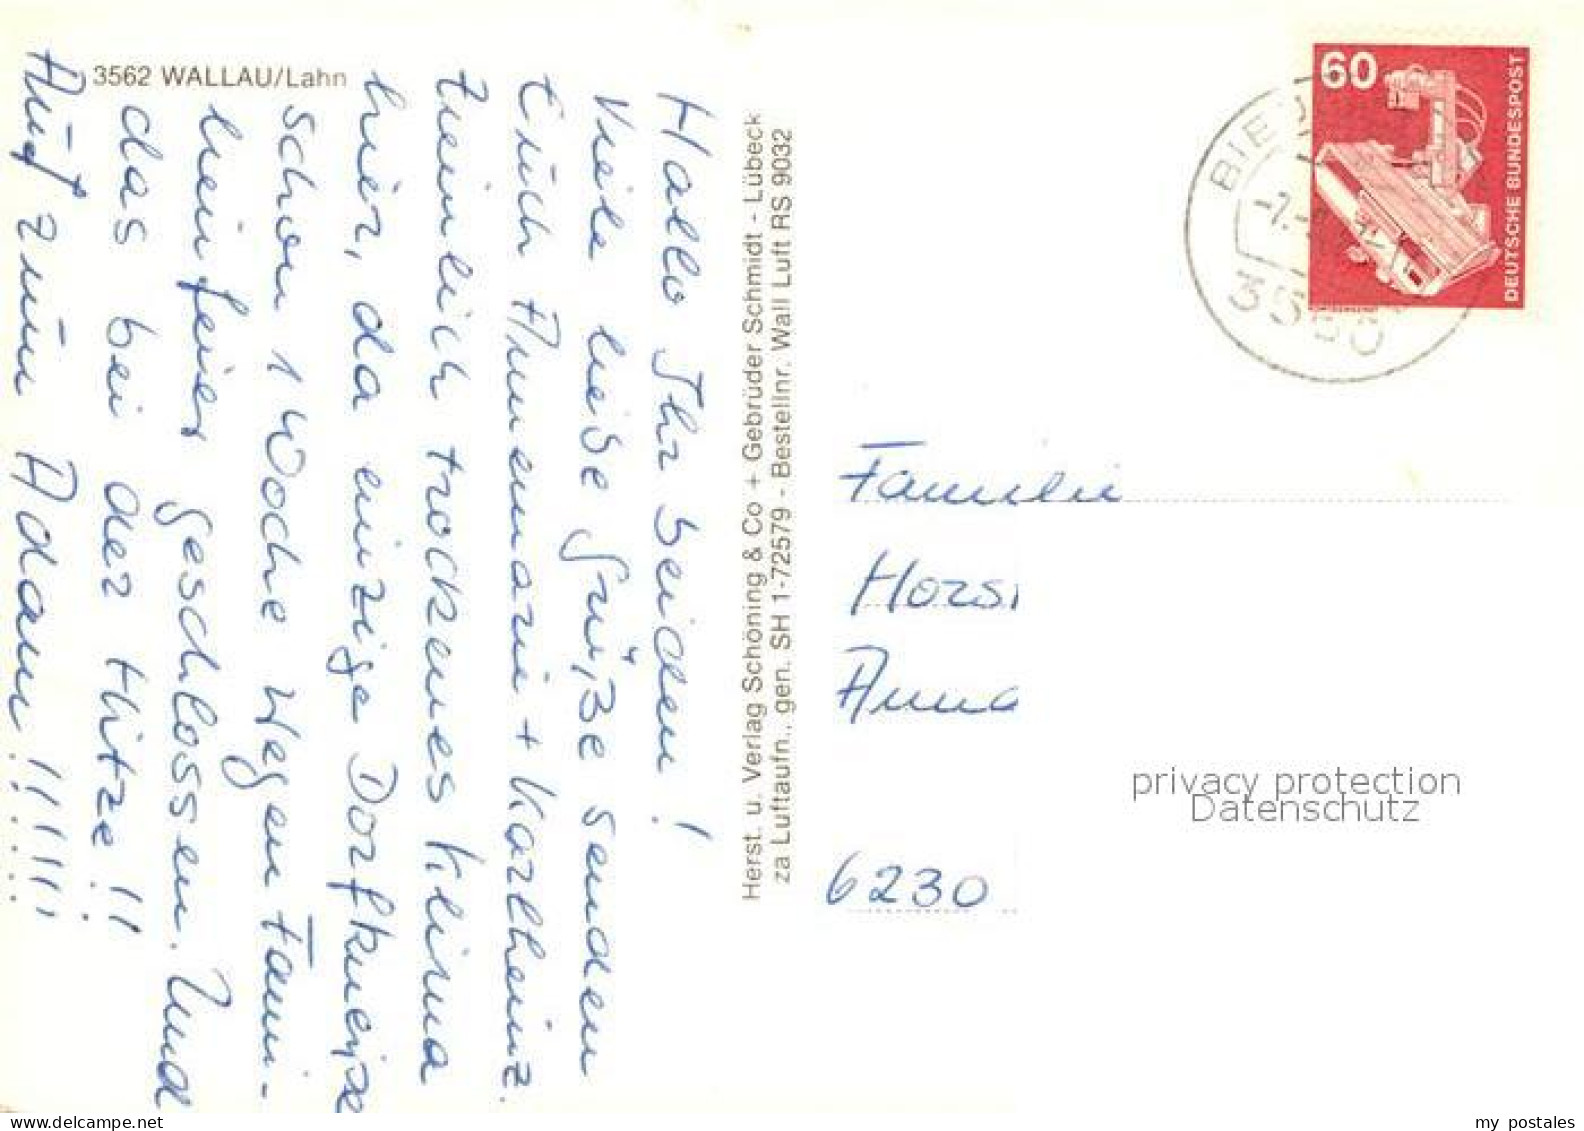 3562 WALLAU/Lahn
Hallo Ihr beiden!
Viele liebe Grüße senden
Euch Annemarie + Karlheinz.
Ziemlich trockenes Klima
hier, da einzige Dorfkneipe
schon 1 Woche wegen Fami-
lienfeier geschlossen. Und
das bei der Hitze!!!
Auf zum Adam!!!!!!
Herst. u. Verlag Schöning & Co + Gebrüder Schmidt - Lübeck
za Luftaufn., gen. SH 1-72579 - Bestellnr. Wall Luft RS 9032
60
DEUTSCHE BUNDESPOST
BIE
3560
Familie
Horst
Anna
privacy protection
Datenschutz
6230
my postales